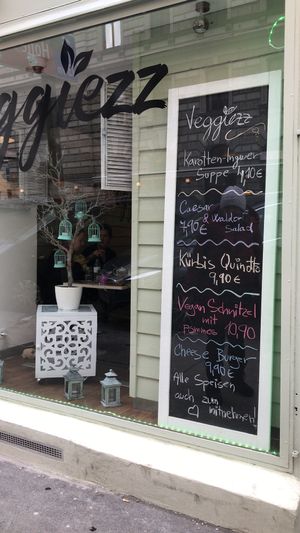 ggiezz
Veggiezz
Karotten-Ingwer
Suppe 4,10€
Caesar
& Waldorf
7,90€ Salad
Kürbis Quindtto
9,90€
Vegan Schnitzel
mit
Pommes 10,90
Cheese Burger
9,90€
Alle Speisen
auch zum
mitnehmen!